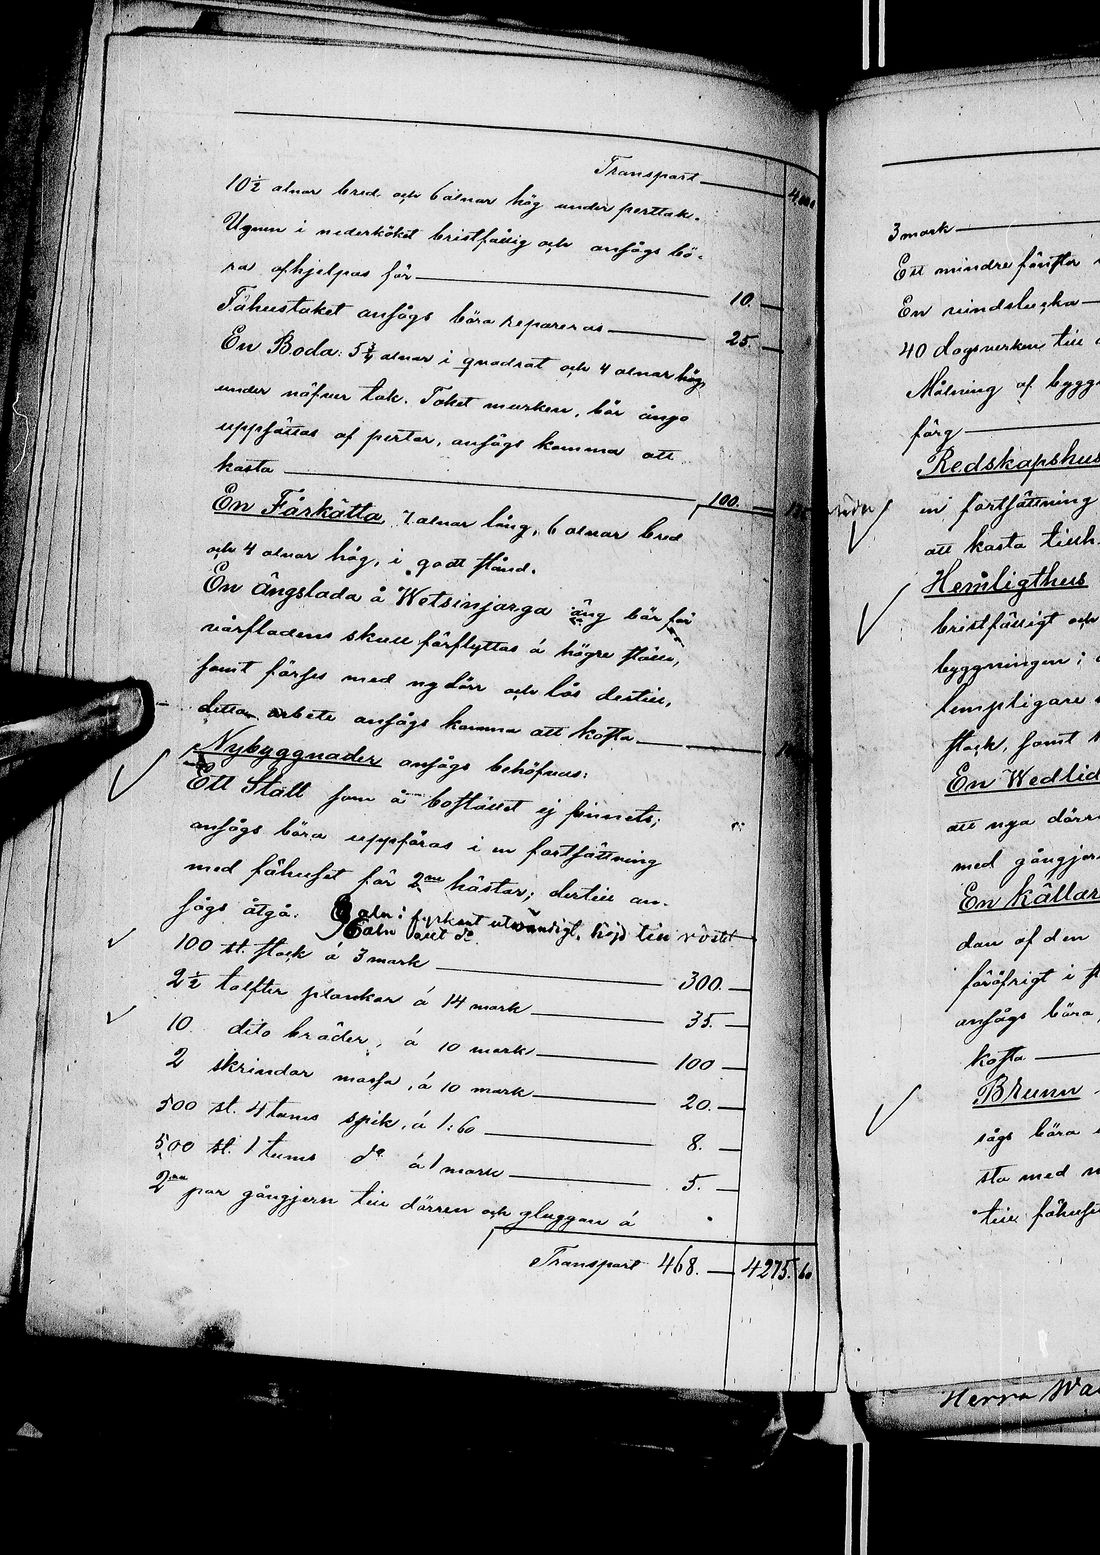 Transport
10½ alnar bred och 6 alnar hög under perttak.
Ugnen i nederköket bristfällig och ansågs bö-
ra afhjelpas för 10.
Fähustaket ansågs böra repareras 25.
En Boda: 5¾ alnar i quadrat och 4 alnar hög
under näfver tak. Taket murken, bör ånyo
uppsättas af pertor, ansågs komma att
kosta 100.
En Fårkätta, 7 alnar lång, 6 alnar bred
och 4 alnar hög, i godt stånd.
En ängslada å Wetsinjarga äng bör för
vårflodens skull förflyttas å högre ställe,
samt förses med ny dörr och lås dertill,
detta arbete ansågs komma att kosta
Nybyggnader ansågs behöfvas:
Ett Stall som å bostället ej finnets;
ansågs böra uppföras i en fortsättning
med fähuset för 2ne hästar; dertill an-
sågs åtgå. 8 aln: i fyrkant utvändigt, höjd till röstet
6 aln allt do.
100 st. stock á 3 mark 300.
2½ tolfter plankor á 14 mark 35.
10 dito bräder, á 10 mark 100
2 skrindor mossa, á 10 mark 20.
500 st. 4 tums spik, á 1:60 8.
500 st. 1 tums do á 1 mark 5.
2ne par gångjern till dörren och gluggan á
Transport 468. 4275. 60
3 mark
Ett mindre fönster
En vindslucka
40 dagsverken till
Målning af bygg
färg
Redskapshus
en fortsättning
att kosta tillh
Hemligthus
bristfälligt och
byggningen;
lämpligare
stock, samt
En Wedlid
att nya dörr
med gångjer
En Källar
dan af den
föröfrigt i
ansågs böra
kosta
Brunn
sågs böra
sta med
till fähuse
Herra